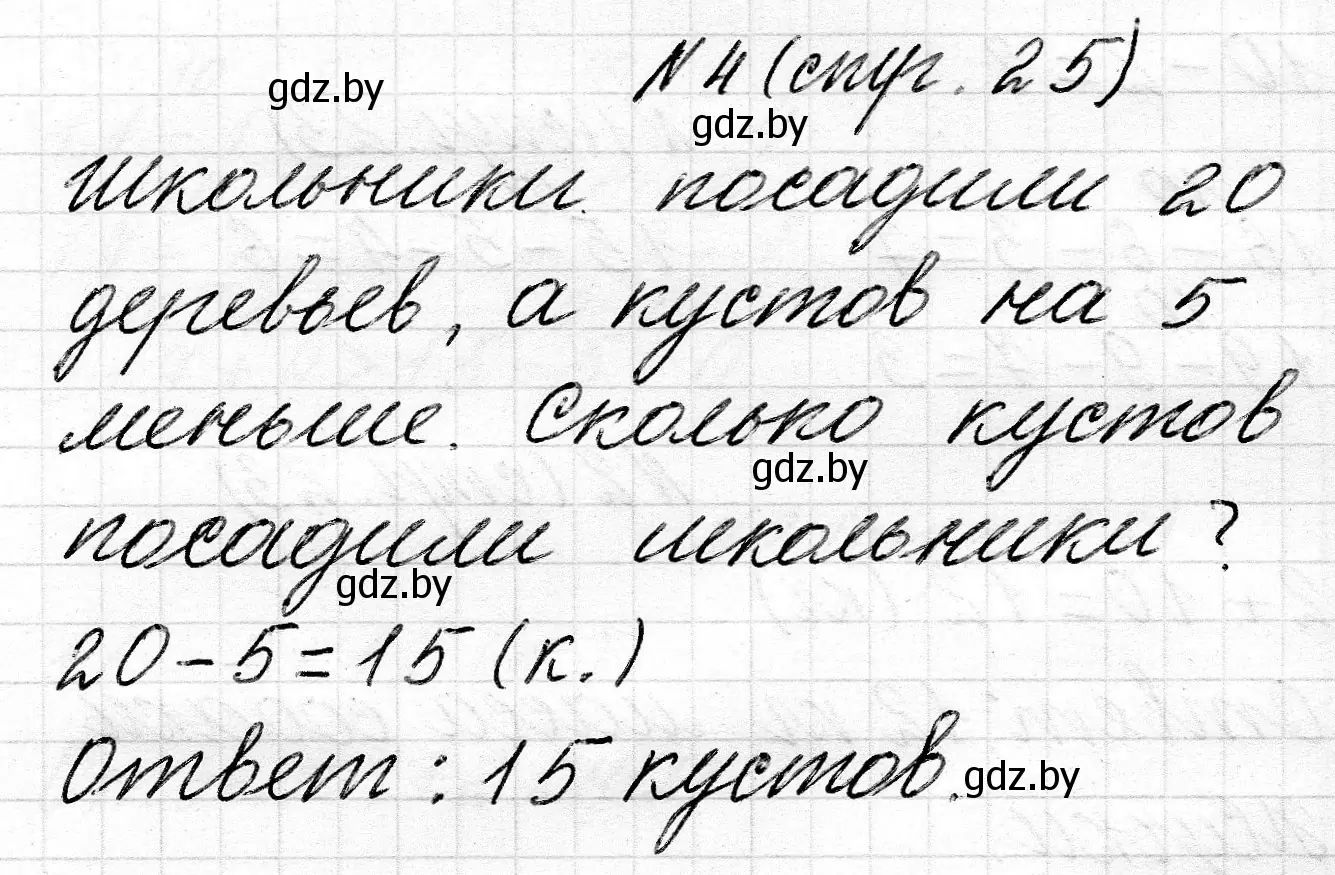 N 4 (стр. 25)
gdz.by
gdz.by
Школьники посадили 20
деревьев, а кустов на 5
меньше. Сколько кустов
gdz.by
посадили школьники?
gdz.by
20 - 5 = 15 (к.)
Ответ: 15 кустов.
gdz.by